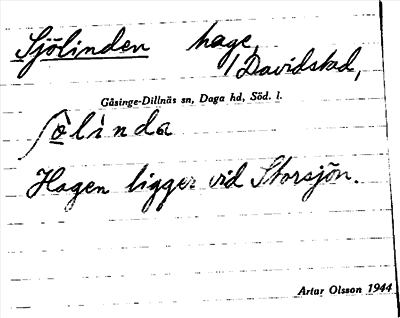 Sjölinden hage,
/Davidstad,
Gåsinge-Dillnäs sn, Daga hd, Söd. l.
ʃö̀lìndɷ
Hagen ligger vid Storsjön.
Artur Olsson 1944